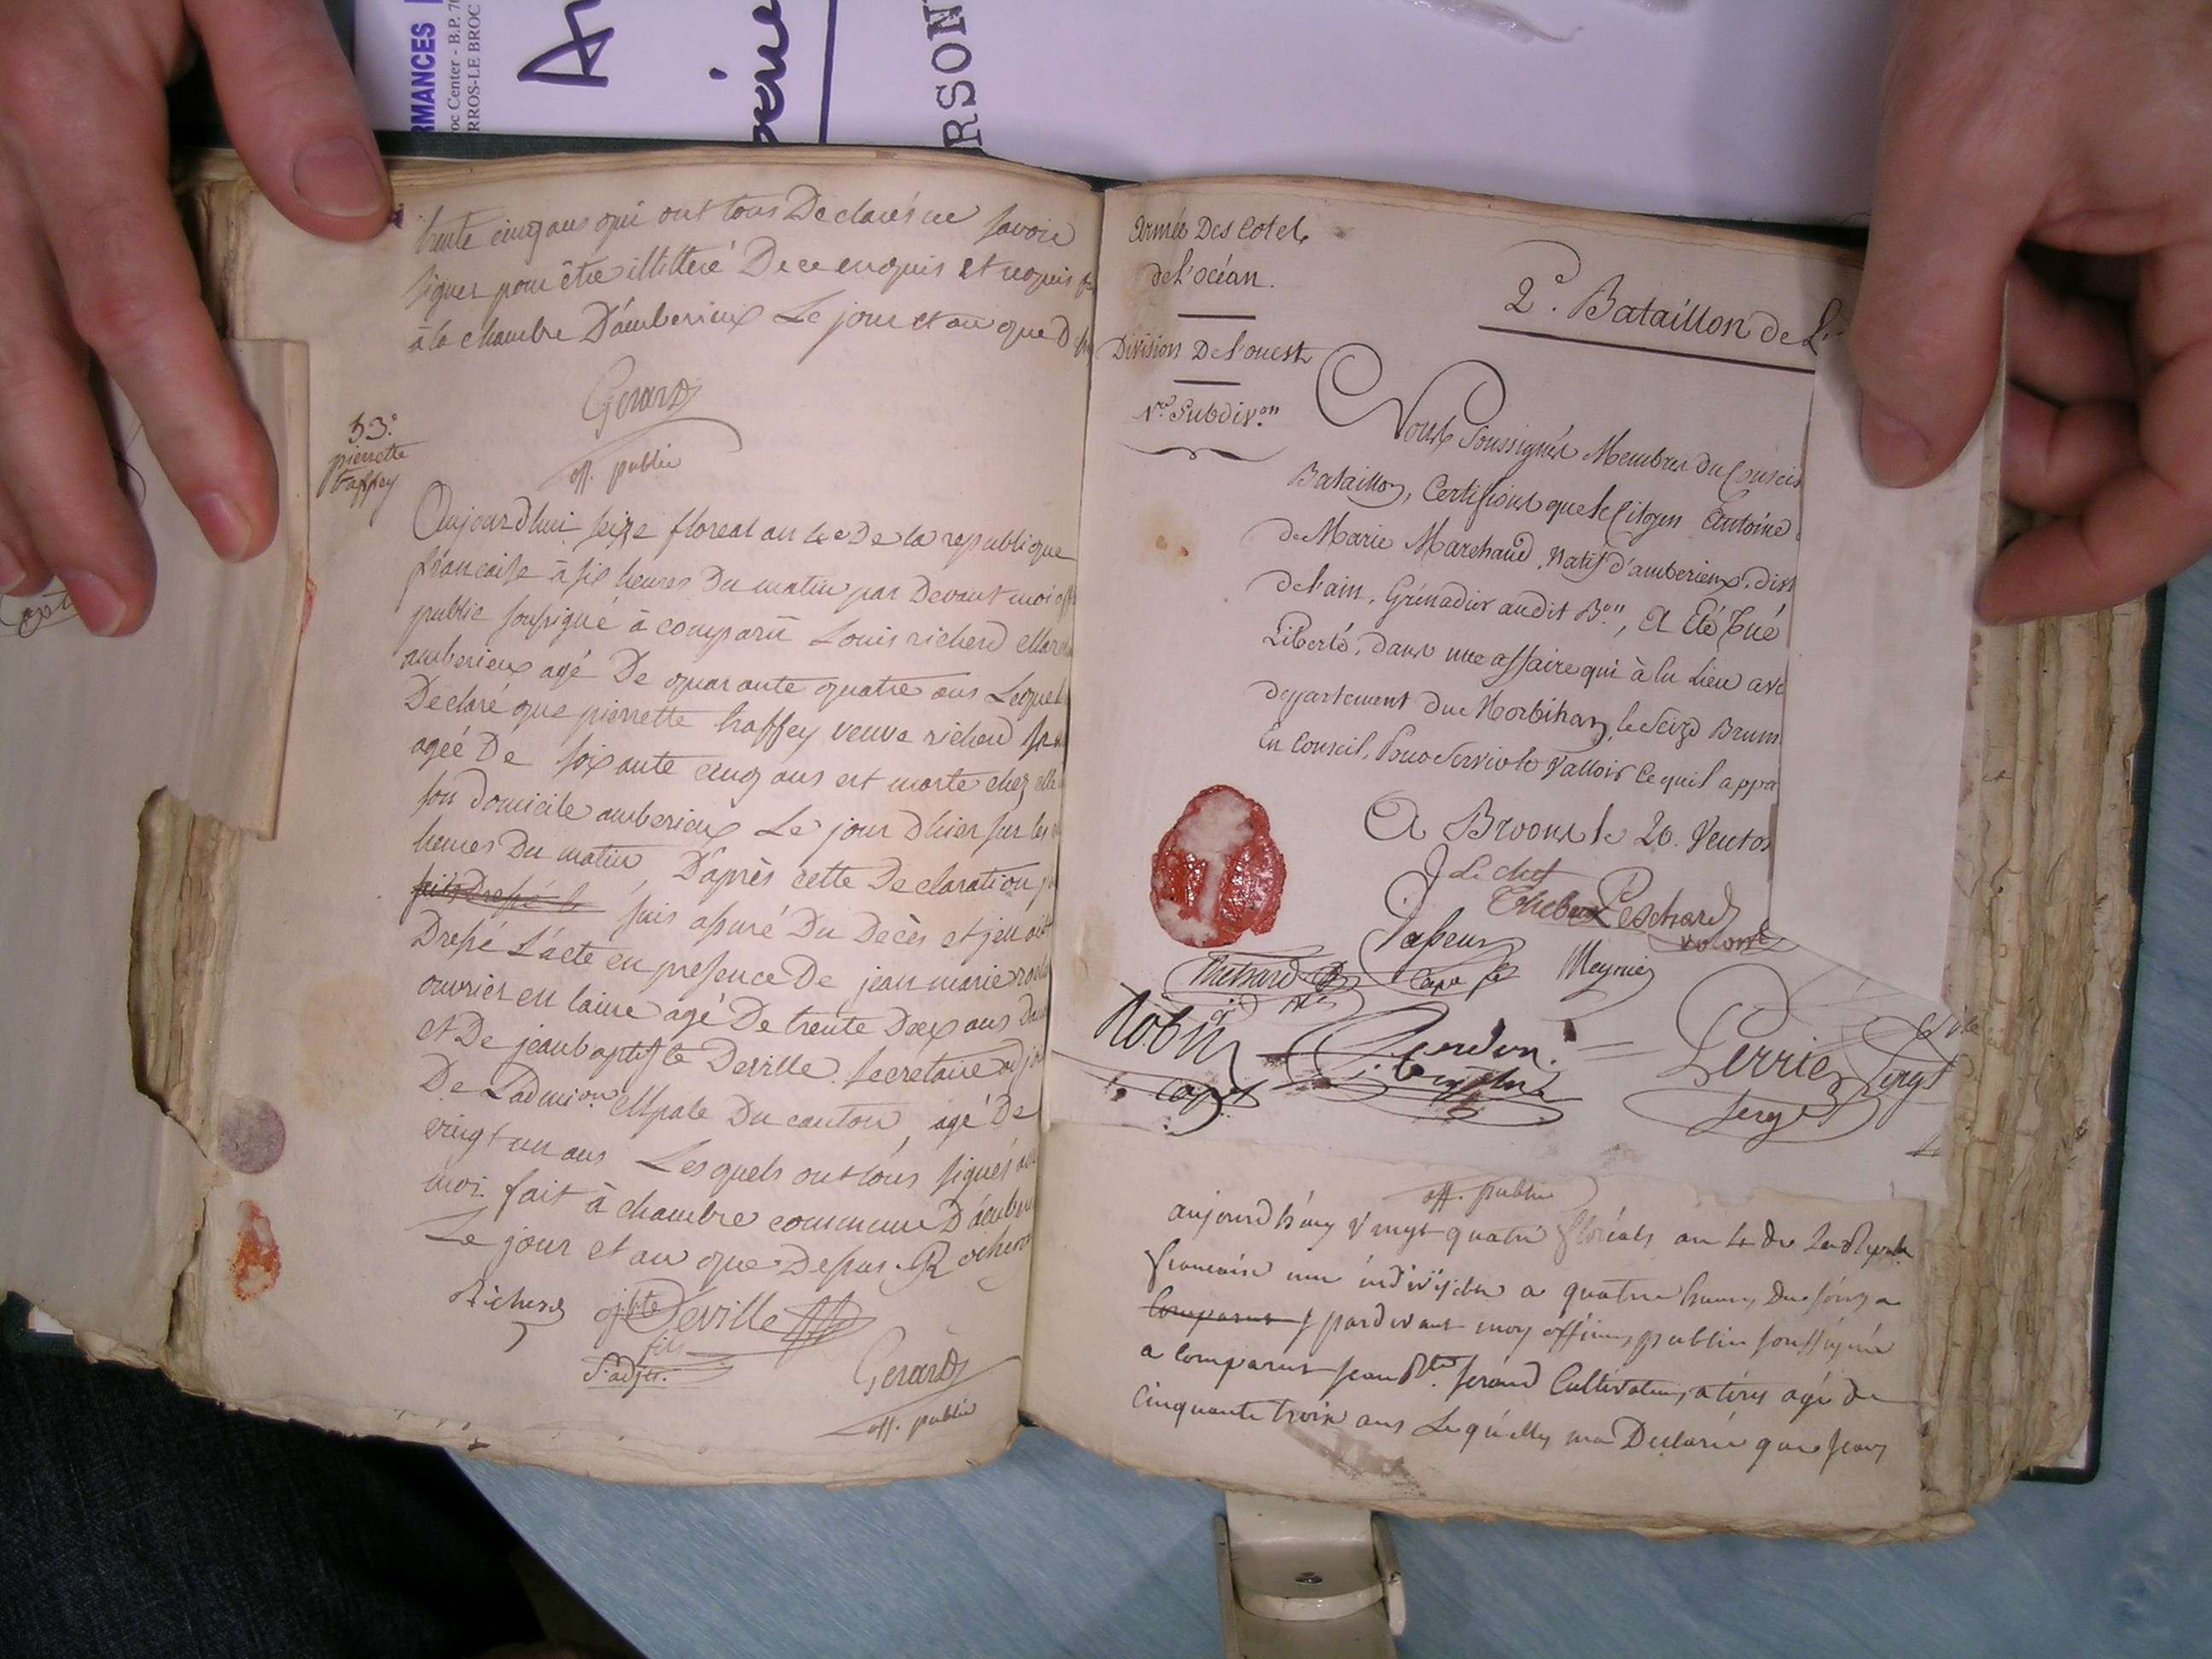 RMANCES
oc Center - B.P. 70
RROS-LE BROC
RSON
trente cinq ans qui ont tous Declarés ne savoir
signer pour être illitteré De ce enquis et requis
à la chambre D'amberieux Le jour et an que D
Gerard
off. public
53.e
pierrette
traffey
Aujourdhui seize floreal an 4e De la republique
francaise à six heures Du matin par Devant moi
public soussigné à comparû Louis richerd
amberieux agé De quarante quatre ans Lequel
Declaré que pierrette traffey veuve richerd
ageé De soixante cinq ans est morte chez elle
son domicile amberieux Le jour dhier sur les
heures Du matin, D'après cette Declaration
suis assuré Du Decès et j'en ai
Dressé L'acte en presence De jean marie
ouvrier en laine agé De trente Deux ans
et De jean baptiste Deville secretaire adj
De L'admion. Mpale Du canton, agé De
vingt un ans Les quels ont tous signés
moi. fait à chambre commune D'amber
Le jour et an que Dessus. Richerd
Richerd jbte Deville
fils
S. adjt.
Gerard
off. public
Armée Des Cotes
de l'océan.
Division De l'ouest
1.re Subdiv.on
2.e Bataillon de L
Nous Soussignés Membres du Conseil
Bataillon, Certifions que le Citoyen Antoine
de Marie Marchand, Natif d'amberieux, dist
de l'ain, Grénadier audit B.on, A Eté Tué
Liberté, dans une affaire qui à lu Lieu avec
departement du Morbihan, le Seize Brum
En Conseil, Pour Servir et Valloir Ce quil appa
A Broons le 26. Ventos
Le chef
Peschard
volont
Passeur
Meynier
Robin
capt
Perrier
serg
off. public
aujourdhuy vingt quatre floréals an 4 de La Repub
francaise une indivisible a quatre heures du soir a
comparut pardevant moy officier public soussigné
a comparut jean Bte. ferand Cultivateur, agé de
Cinquante trois ans Lequelly ma Declaré que jean